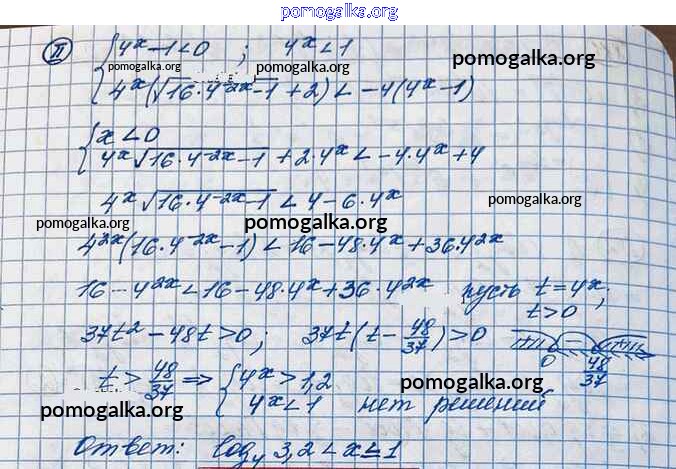 pomogalka.org
II { 4^x - 1 < 0 ; 4^x < 1
pomogalka.org
pomogalka.org pomogalka.org
4^x (√(16 · 4^(-2x) - 1) + 2) < -4(4^x - 1)
{ x < 0
4^x √(16 · 4^(-2x) - 1) + 2 · 4^x < -4 · 4^x + 4
4^x √(16 · 4^(-2x) - 1) < 4 - 6 · 4^x
pomogalka.org
pomogalka.org pomogalka.org
4^(2x) (16 · 4^(-2x) - 1) < 16 - 48 · 4^x + 36 · 4^(2x)
16 - 4^(2x) < 16 - 48 · 4^x + 36 · 4^(2x) пусть t = 4^x;
t > 0
37t² - 48t > 0; 37t(t - 48/37) > 0
0 48/37
t > 48/37 ⇒ { 4^x > 1,2
4^x < 1 нет решений
pomogalka.org pomogalka.org
Ответ: log₄ 3,2 < x ≤ 1